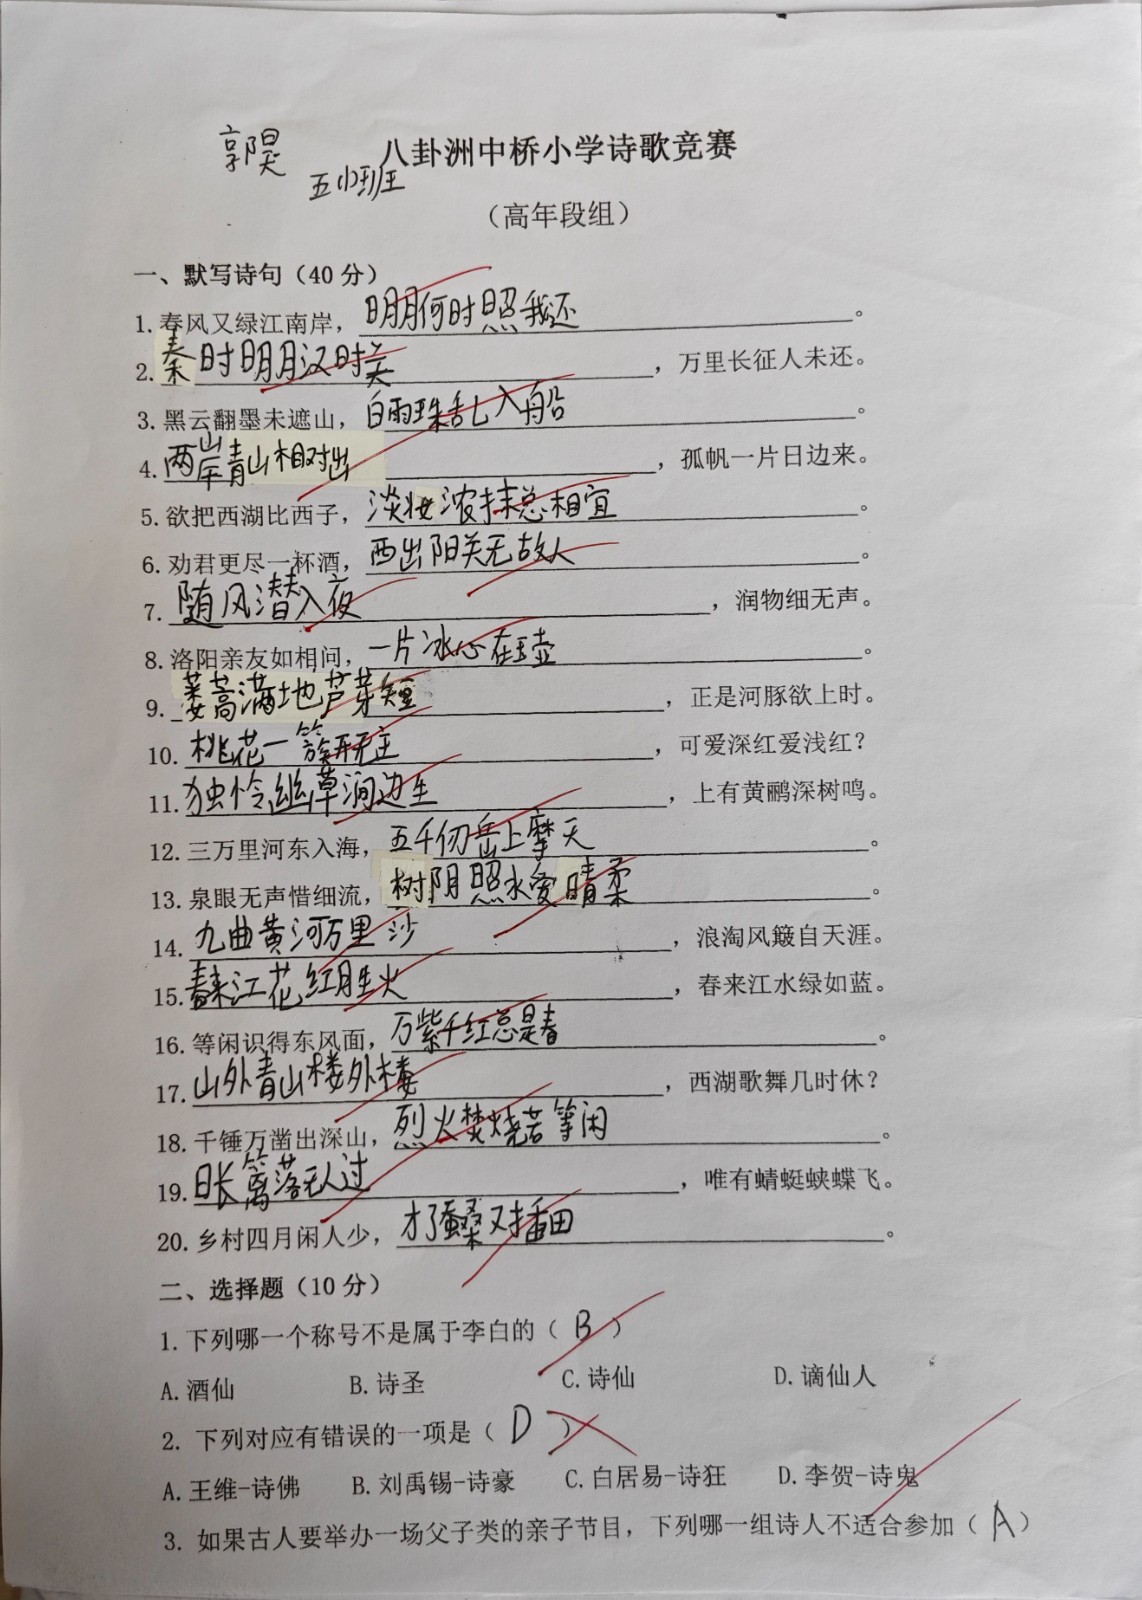 郭昊
八卦洲中桥小学诗歌竞赛
五(2)班
（高年段组）
一、默写诗句（40 分）
1. 春风又绿江南岸，明月何时照我还。
2. 秦时明月汉时关，万里长征人未还。
3. 黑云翻墨未遮山，白雨珠乱入船。
4. 两岸青山相对出，孤帆一片日边来。
5. 欲把西湖比西子，淡妆浓抹总相宜。
6. 劝君更尽一杯酒，西出阳关无故人。
7. 随风潜入夜，润物细无声。
8. 洛阳亲友如相问，一片冰心在玉壶。
9. 蒌蒿满地芦芽短，正是河豚欲上时。
10. 桃花一簇开无主，可爱深红爱浅红？
11. 独怜幽草涧边生，上有黄鹂深树鸣。
12. 三万里河东入海，五千仞岳上摩天。
13. 泉眼无声惜细流，树阴照水爱晴柔。
14. 九曲黄河万里沙，浪淘风簸自天涯。
15. 春来江花红胜火，春来江水绿如蓝。
16. 等闲识得东风面，万紫千红总是春。
17. 山外青山楼外楼，西湖歌舞几时休？
18. 千锤万凿出深山，烈火焚烧若等闲。
19. 日长篱落无人过，唯有蜻蜓蛱蝶飞。
20. 乡村四月闲人少，才了蚕桑又插田。
二、选择题（10 分）
1. 下列哪一个称号不是属于李白的（ B ）
A. 酒仙 B. 诗圣 C. 诗仙 D. 谪仙人
2. 下列对应有错误的一项是（ D ）
A. 王维-诗佛 B. 刘禹锡-诗豪 C. 白居易-诗狂 D. 李贺-诗鬼
3. 如果古人要举办一场父子类的亲子节目，下列哪一组诗人不适合参加（ A ）